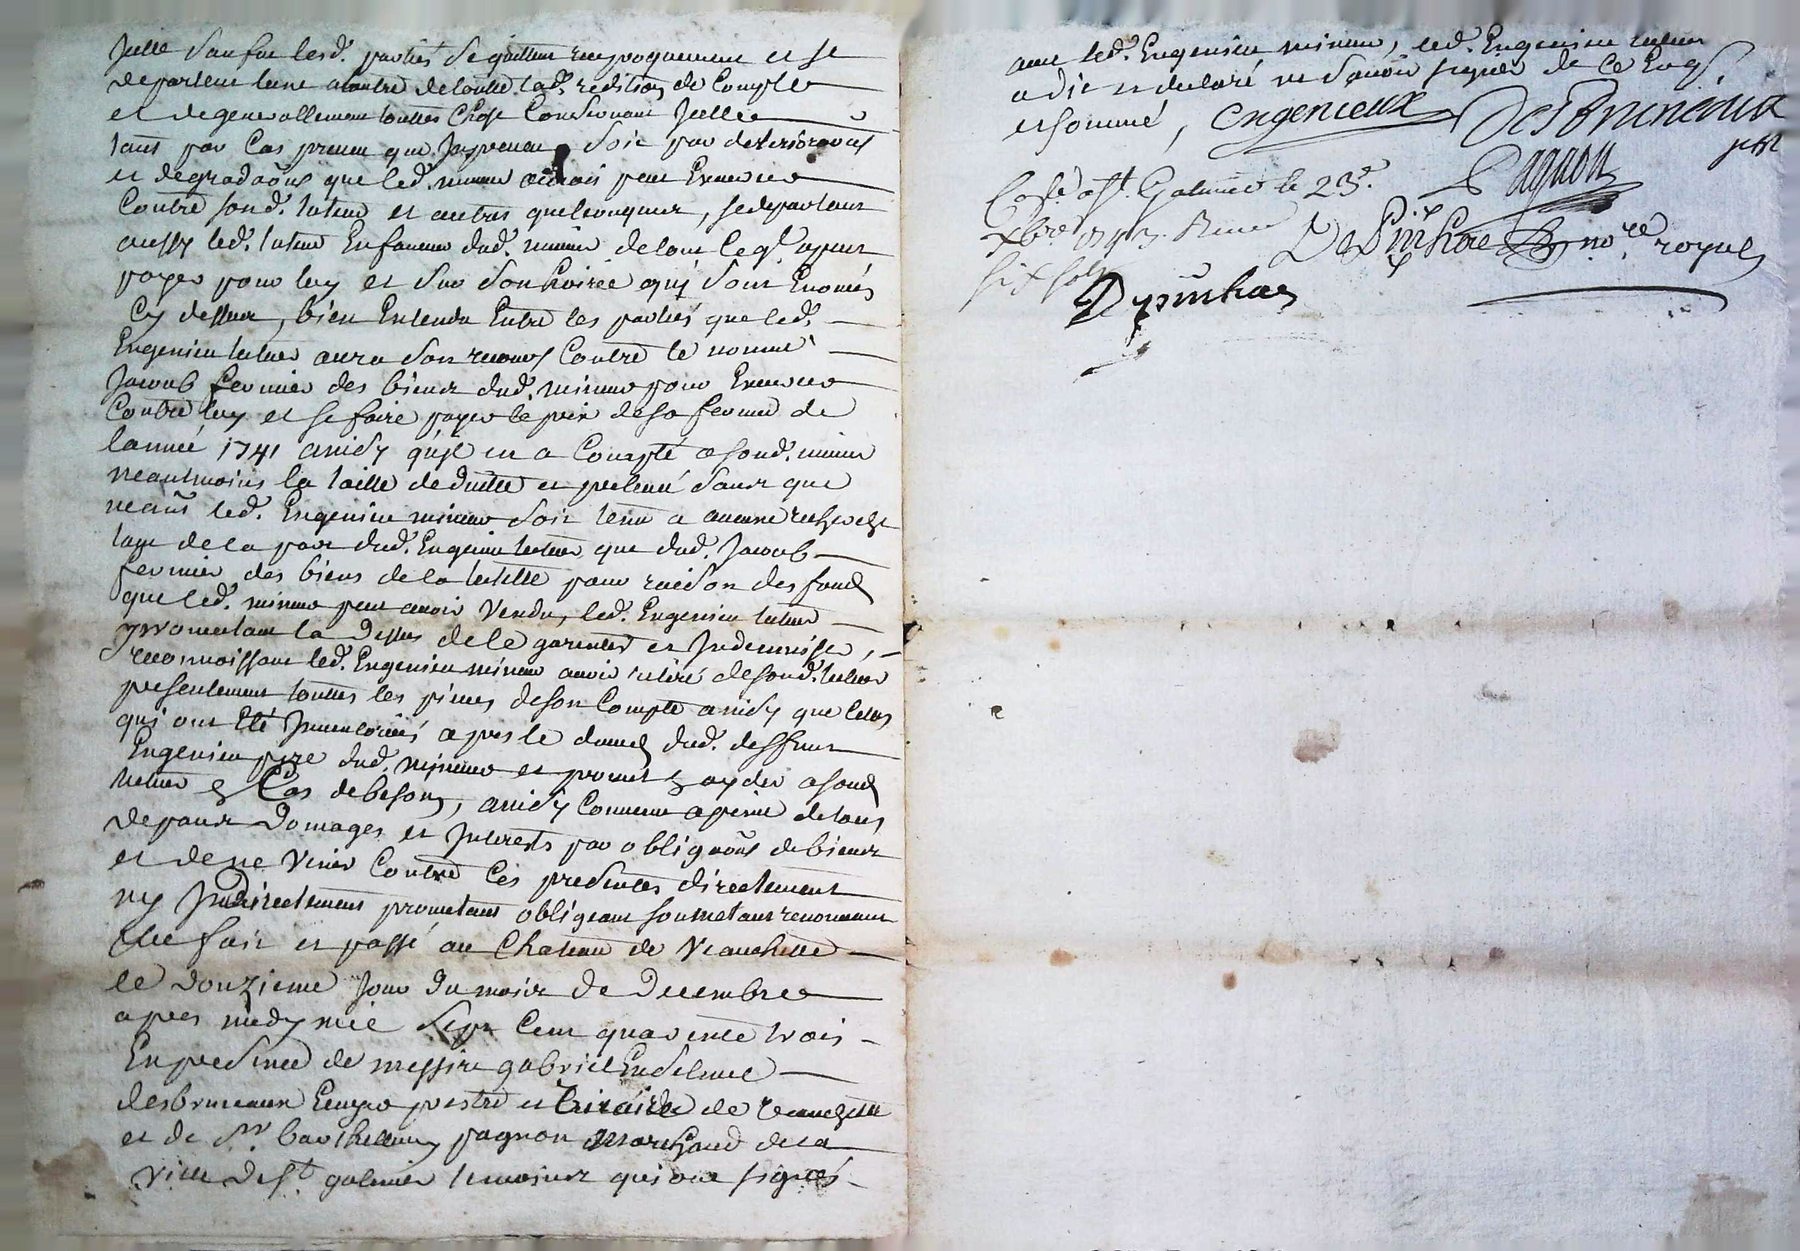 Icelle sauf que lesd. parties se quittent reciproquement et se
departent lune a lautre de toutte lad. reddition de Compte
et de generallement touttes Chose Concernant Icelle
tant par Cas preveu que Impreveu Soit par deterioraõns
et degradaõns que led. mineur auroit peut Exercer
Contre sond. tuteur et autres quelconques, se departant
aussy led. tuteur En faveur dud. mineur de tout ce q'il a peut
payer pour luy et sur son hoirie qui sont Enoncés
Cy dessus, bien Entendu Entre les parties que led.
Engenieu tuteur aura son recours Contre le nommé
Jacoub fermier des biens dud. mineur pour Exercer
Contre luy et se faire payer le prix de sa ferme de
lannée 1741 ainsy qu'il en a Compté a sond. mineur
neantmoins la taille deduitte et prelevé sans que
neanñ led. Engenieu mineur soit tenu a aucune recherche
tant de la part dud. Engenieu tuteur que dud. Jacoub
fermier des biens de la tutelle pour raison des fonds
que led. mineur peut avoir Vendu, led. Engenieu tuteur
promettant la dessus de le garentir et Indemniser,
reconnoissant led. Engenieu mineur avoir retiré de sond. tuteur
presentement touttes les pieces de son Compte ainsy que Celles
qui ont Eté Inventoriées apres le deced dud. deffunt
Engenieu pere dud. mineur et promet ayder a sond
tuteur Cas de besoin, ainsy Convenu a peine de tous
depans domages et Interests par obligaõns de biens
et de ne Venir Contre Ces presentes directement
ny Indirectement promettant obligeant soumettant renonceant
fait et passé au Chateau de Veauchette
le douzieme Jour du mois de Decembre
apres midy mil Sept Cent quarente trois
En presence de messire gabriel
desbruneaux pretre et Vicaire de Veauchette
et de Sr. barthellemy pagnon marchand de la
Ville de St. galmier temoins qui ont signés
avec led. Engenieu mineur, led. Engenieu tuteur
a dit et declaré ne scavoir signer de ce Enq.
et sommé, engenieux DesBruneaux
pstr
Pagnon
Con. lé a St. Galmier le 23.
Xbre 1743. Receu
six sols
DePinhac no.re royal
Depinhac